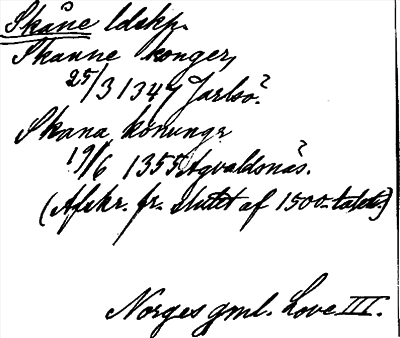 Skåne ldskp.
Skanne konger,
25/3 1347 Jarlsö?
Skana konungr
19/6 1355 Agvaldsnäs?
(Afskr. fr. slutet af 1500-talet)
Norges gml. Love III.